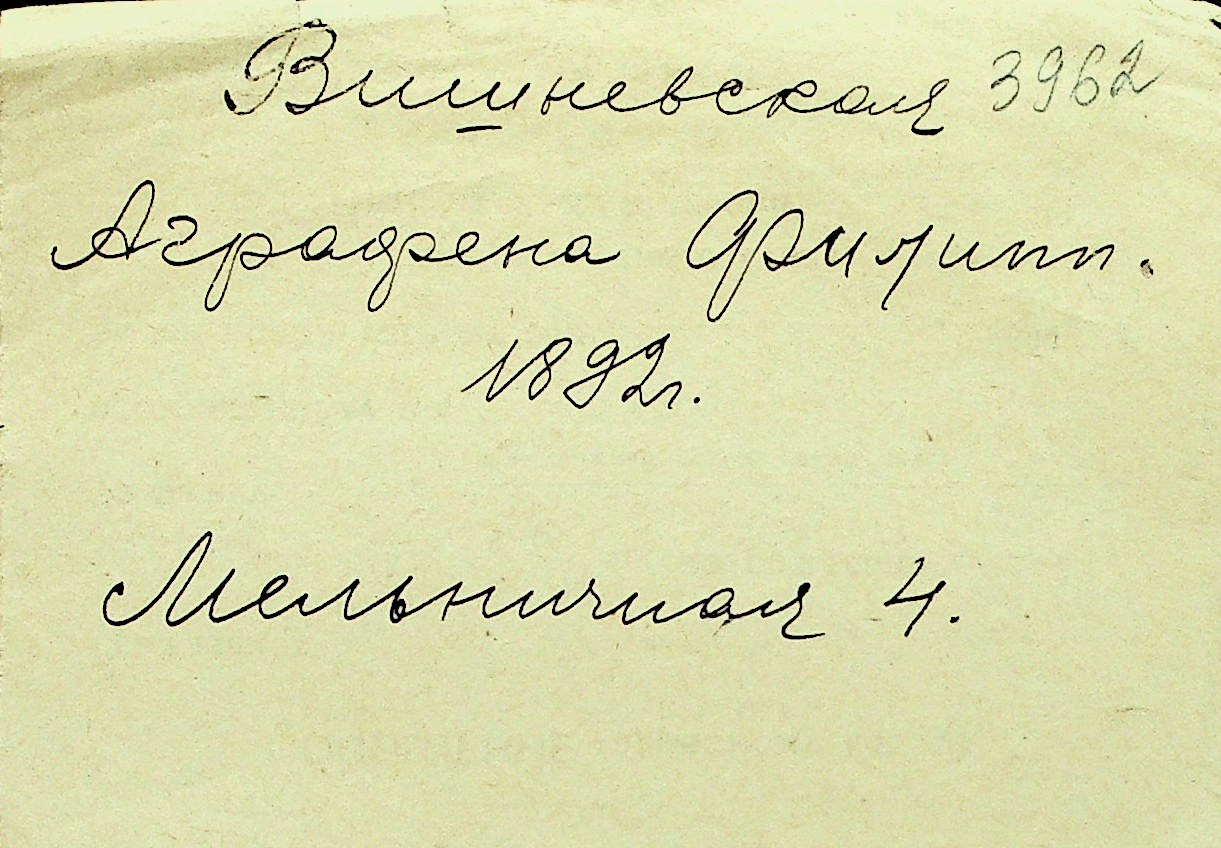 Вишневская 3962
Аграфена Филипп.
1892г.
Мельничная 4.